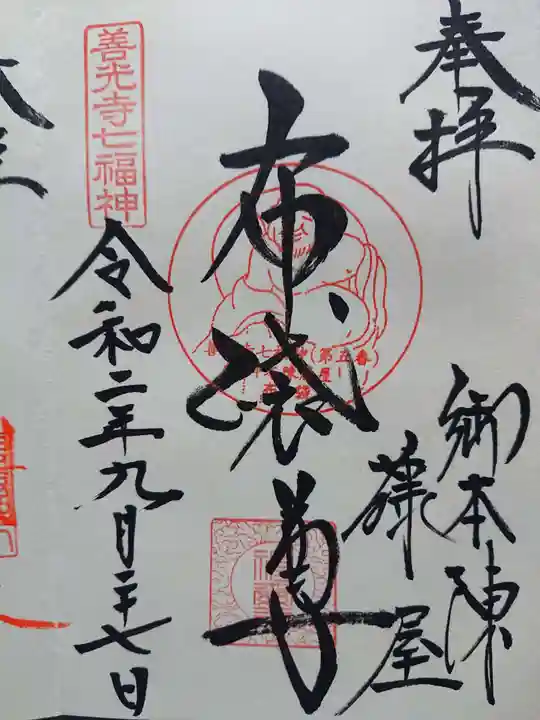 奉拝
御本陳
藤屋
布袋尊
(第五番)
善光寺七福神
令和二年九月二十七日